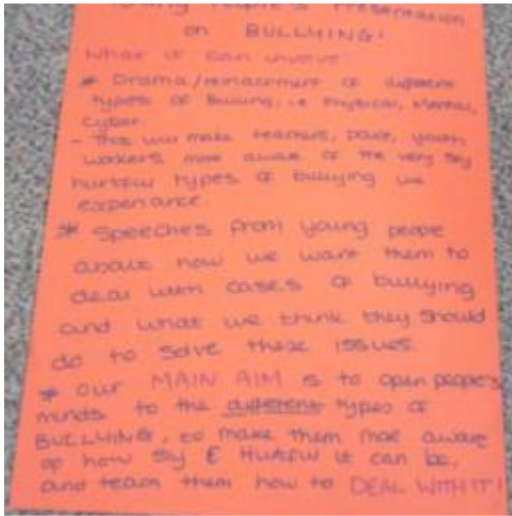 Young People's Presentation
on BULLYING!
What it can involve
* Drama/reinactment of different
types of Bullying, i.e Physical, Mental,
Cyber.
- This will make teachers, police, youth
workers more aware of the very sly
hurtful types of bullying we
experiance
* Speeches from young people
about how we want them to
deal with cases of bullying
and what we think they should
do to solve these issues
* Our MAIN AIM is to open people's
minds to the different types of
BULLYING, to make them more aware
of how sly & Hurtful it can be,
and teach them how to DEAL WITH IT!